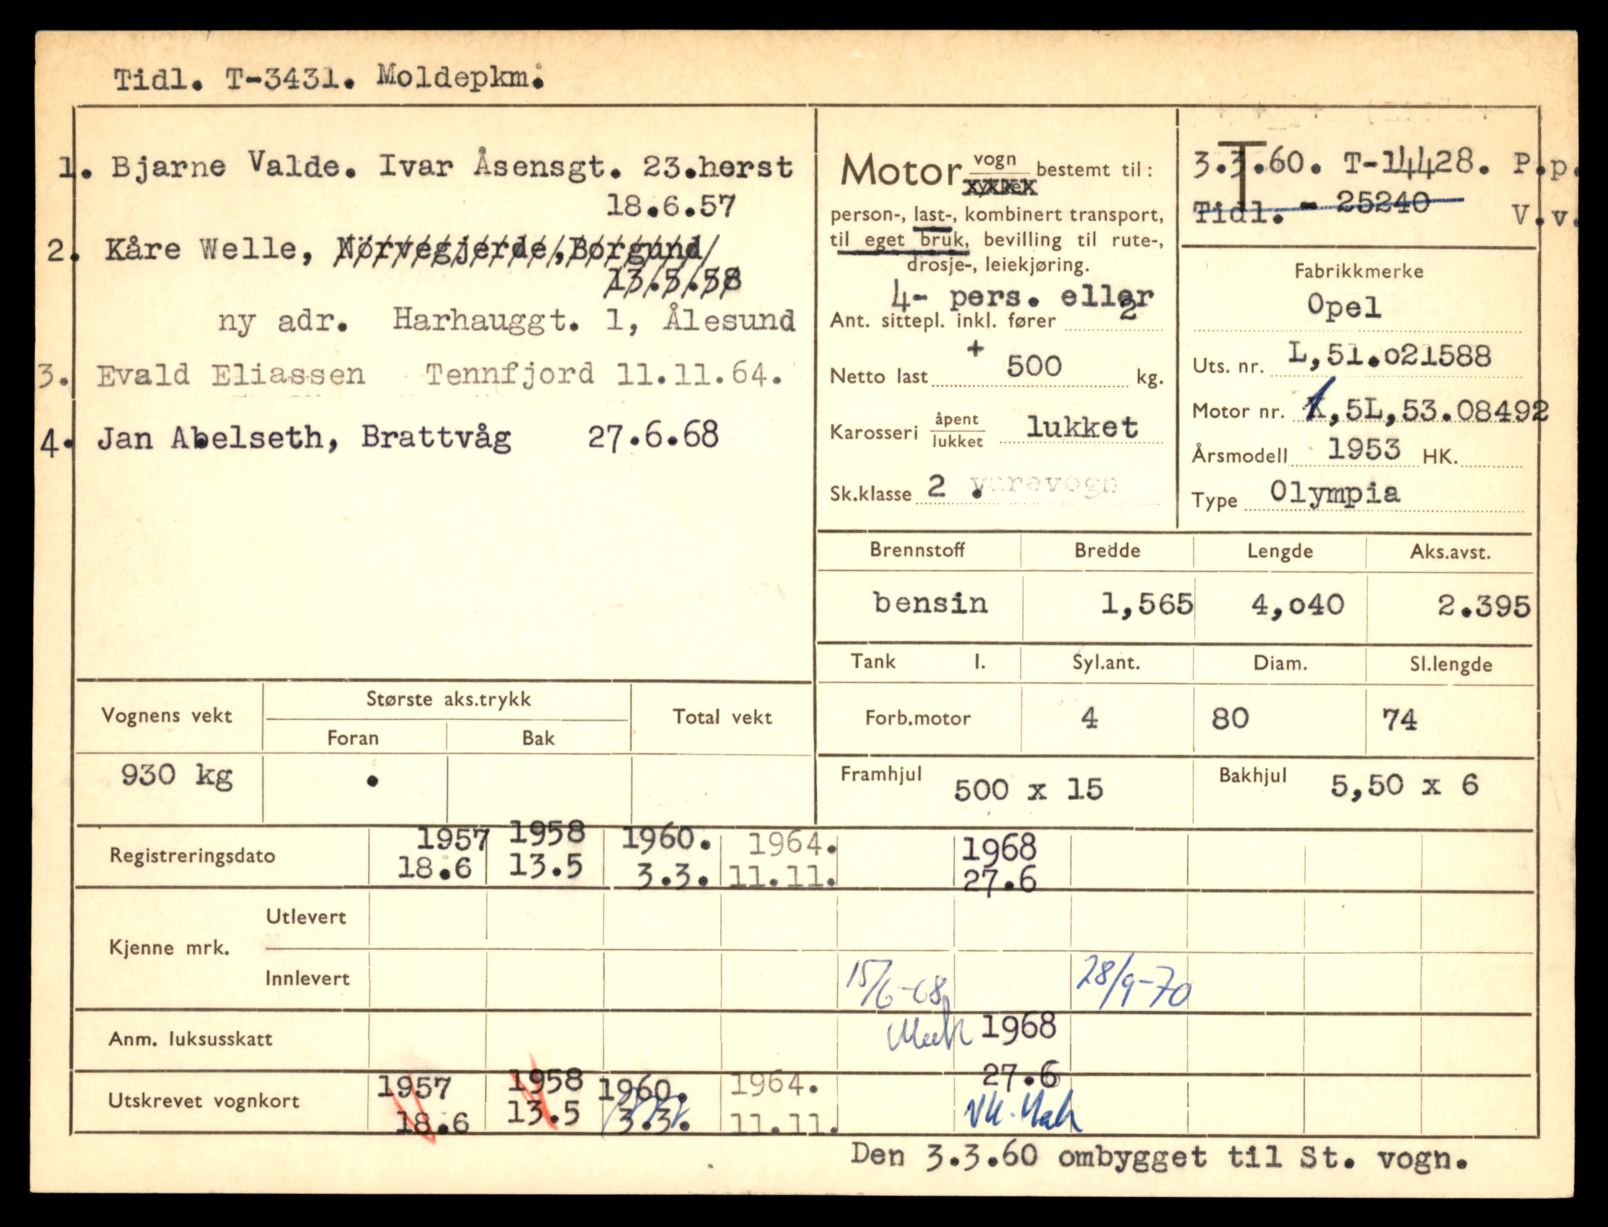 Tidl. T-3431. Moldepkm.
1. Bjarne Valde. Ivar Åsensgt. 23.herst
18.6.57
2. Kåre Welle, Nörvegjerde,Borgund
13.5.58
ny adr. Harhauggt. 1, Ålesund
3. Evald Eliassen Tennfjord 11.11.64.
4. Jan Abelseth, Brattvåg 27.6.68
Motor vogn sykkel bestemt til:
person-, last-, kombinert transport,
til eget bruk, bevilling til rute-,
drosje-, leiekjøring.
4- pers. eller
Ant. sittepl. inkl. fører 2
+
Netto last 500 kg.
Karosseri åpent lukket lukket
Sk.klasse 2 . varevogn
3.3.60. T-14428. P.p.
T
Tidl. - 25240 V.v.
Fabrikkmerke
Opel
Uts. nr. L,51.021588
Motor nr. 1,5L,53.08492
Årsmodell 1953 HK.
Type Olympia
Brennstoff Bredde Lengde Aks.avst.
bensin 1,565 4,040 2.395
Tank l. Syl.ant. Diam. Sl.lengde
Forb.motor 4 80 74
Framhjul 500 x 15 Bakhjul 5,50 x 6
Vognens vekt Største aks.trykk Total vekt
Foran Bak
930 kg
Registreringsdato 1957 1958 1960. 1964. 1968
18.6 13.5 3.3. 11.11. 27.6
Kjenne mrk. Utlevert
Innlevert 15/6-68 28/9-70
Anm. luksusskatt 1968
27.6
Utskrevet vognkort 1957 1958 1960. 1964.
18.6 13.5 3.3. 11.11.
Den 3.3.60 ombygget til St. vogn.